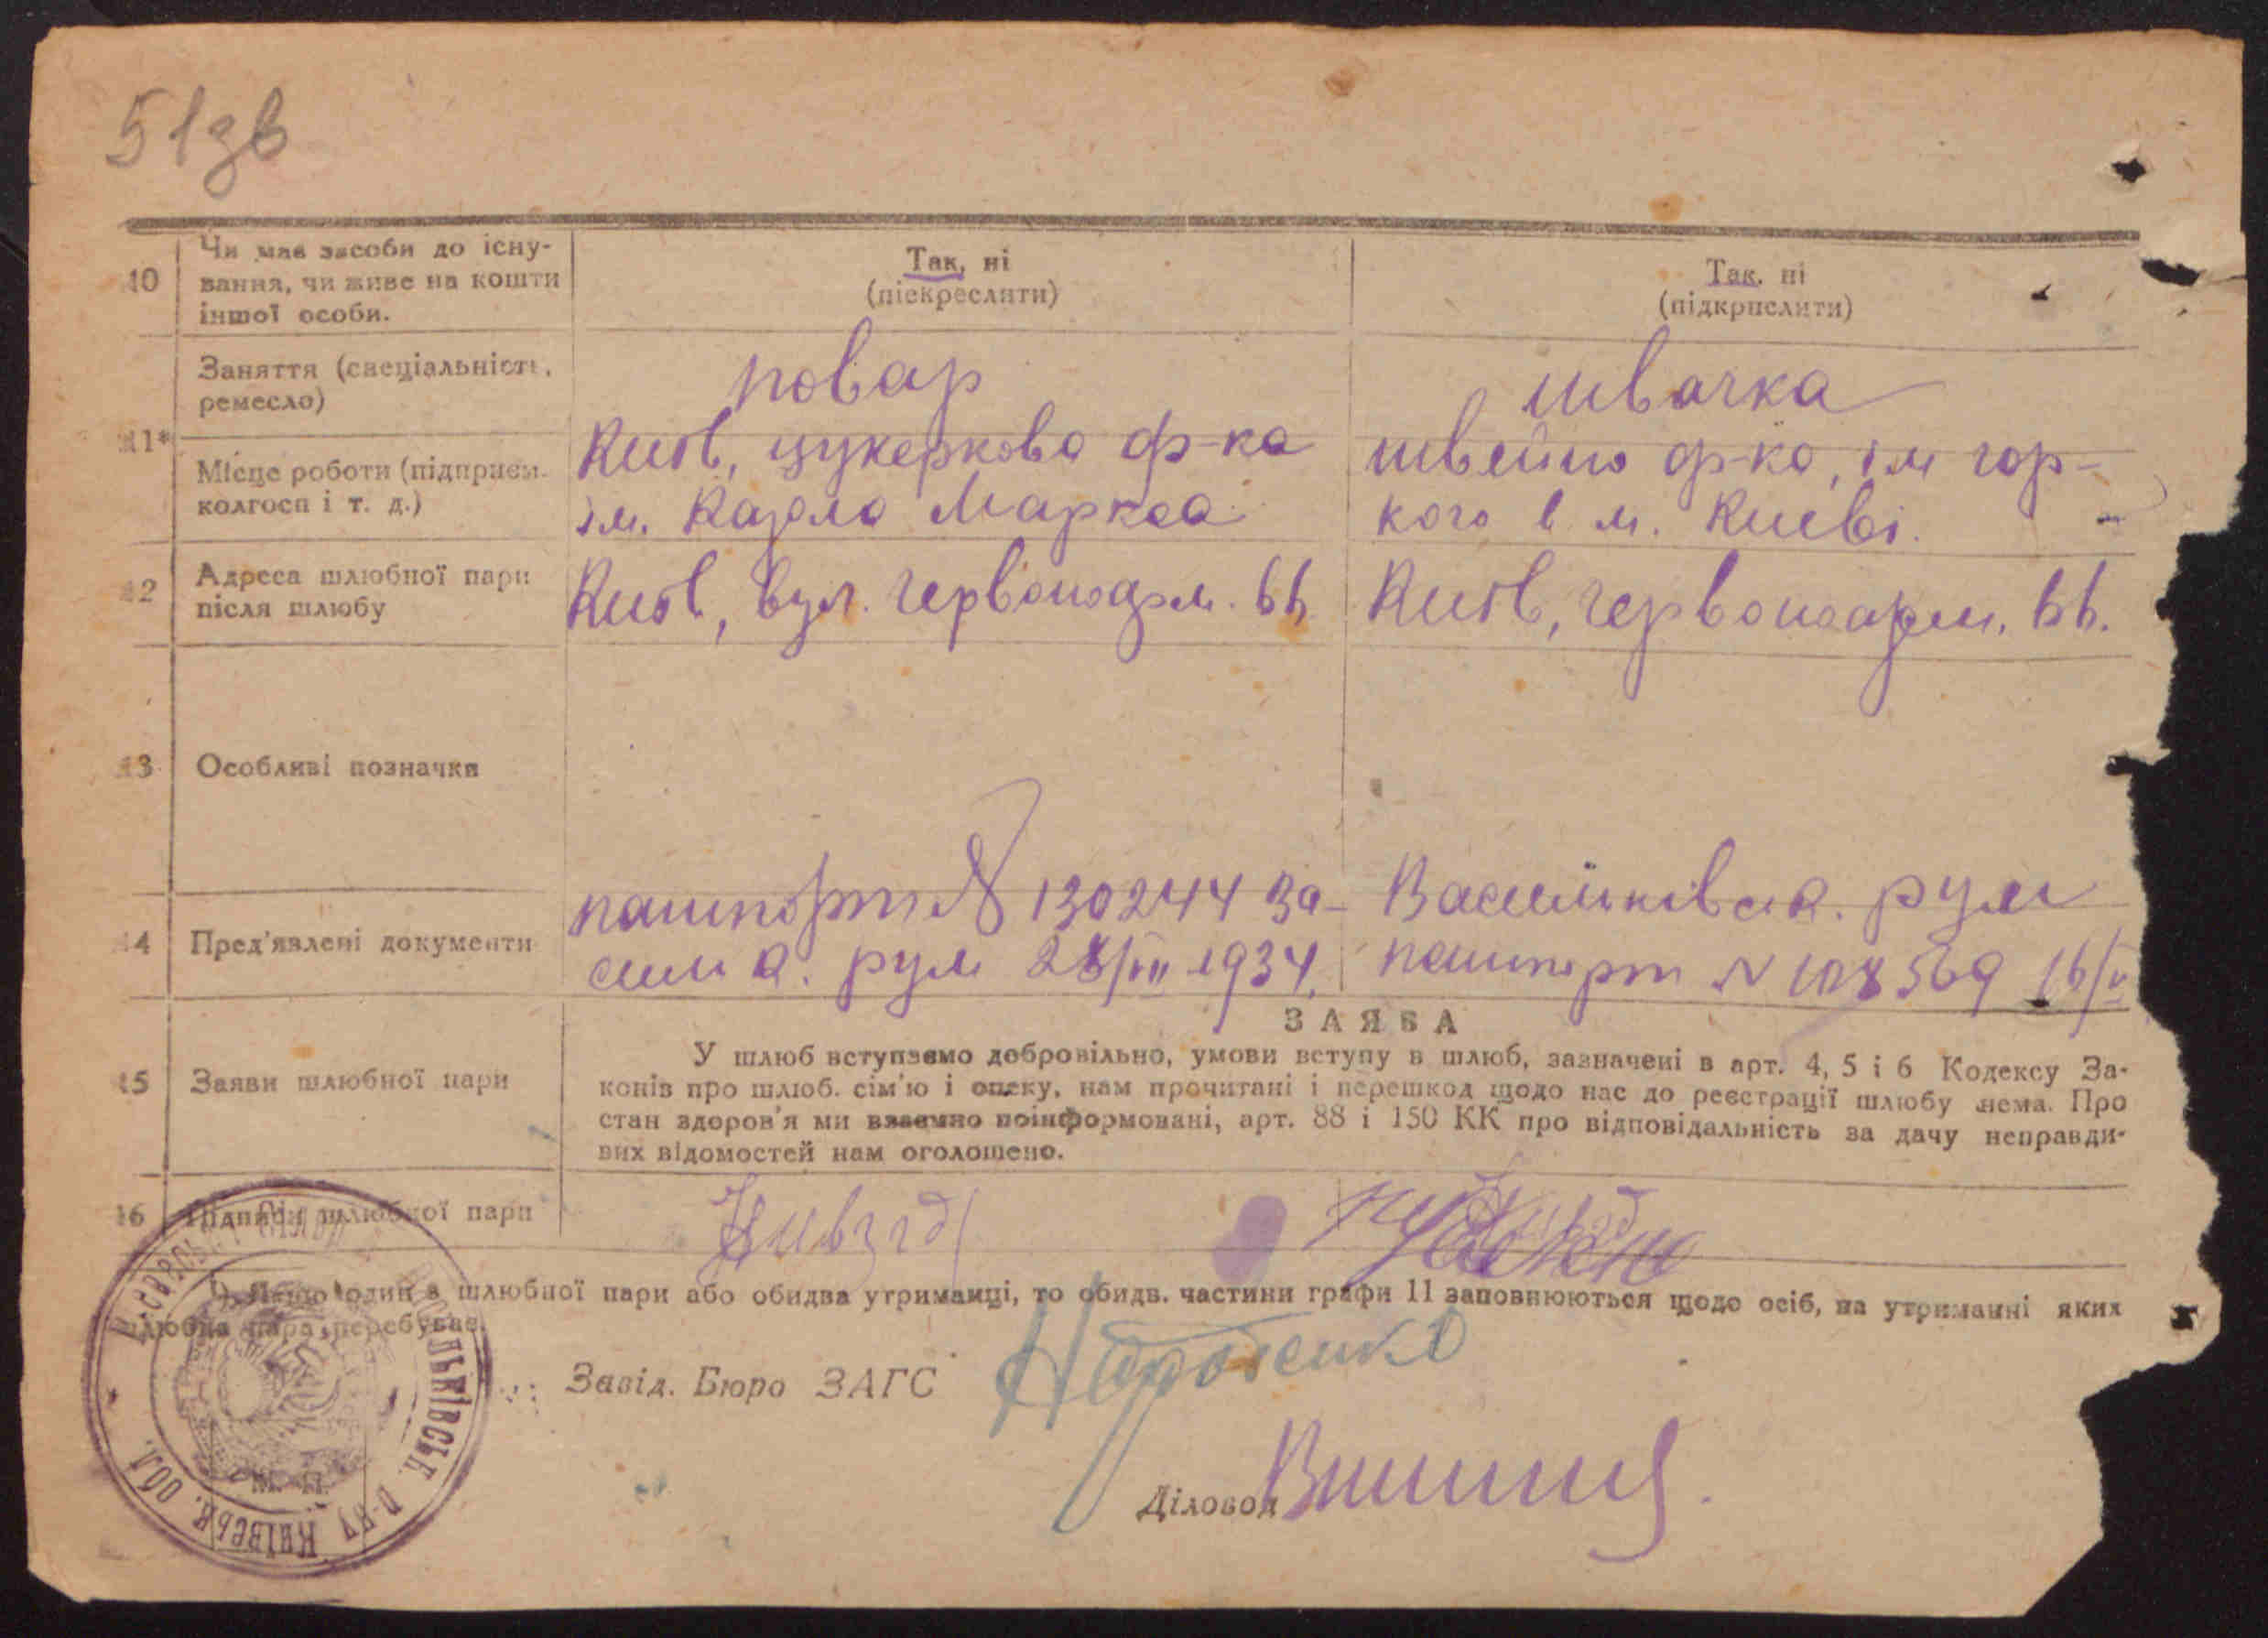 51зв
10
Чи має засоби до існу-
вання, чи живе на кошти
іншої особи.
Так, ні
(піекреслити)
Так. ні
(підкрислити)
11*
Заняття (спеціальність,
ремесло)
повар
швачка
Місце роботи (підприєм.
колгосп і т. д.)
Київ, цукеркова ф-ка
ім. Карла Маркса
швейна ф-ка, ім гор-
кого в м. Києві.
12
Адреса шлюбної пари
після шлюбу
Київ, вул. Червоноарм. 66
Київ, Червоноарм. 66.
13
Особливі позначки
14
Пред'явлені документи
пашпорт № 130244 За-
сим а. рум 28/VII 1934.
Васильківськ. рум
пашпорт N 108569 16/V
15
Заяви шлюбної пари
ЗАЯВА
У шлюб вступаємо добровільно, умови вступу в шлюб, зазначені в арт. 4, 5 і 6 Кодексу За-
конів про шлюб. сім'ю і опеку, нам прочитані і перешкод щодо нас до реєстрації шлюбу нема. Про
стан здоров'я ми взаємно поінформовані, арт. 88 і 150 КК про відповідальність за дачу неправди-
вих відомостей нам оголошено.
16
Підписи шлюбної пари
*) Якщо один з шлюбної пари або обидва утриманці, то обидв. частини графи 11 заповнюються щодо осіб, на утриманні яких
шлюбна пара перебуває.
Завід. Бюро ЗАГС
Діловод
М. П.
КИЇВСЬК. ОБЛ.